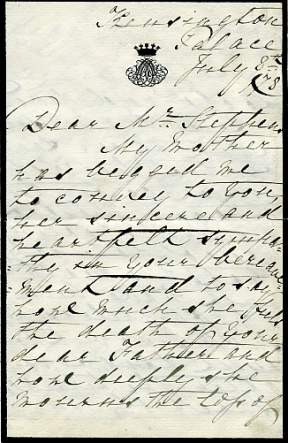 Kensington
Palace
July 8th
/78
Dear Mr. Stephens
My Mother
has begged me
to convey to you,
her sincere and
heartfelt sympa-
thy in your bereave-
ment and to say
how much she feels
the death of your
dear Father and
how deeply she
mourns the loss of